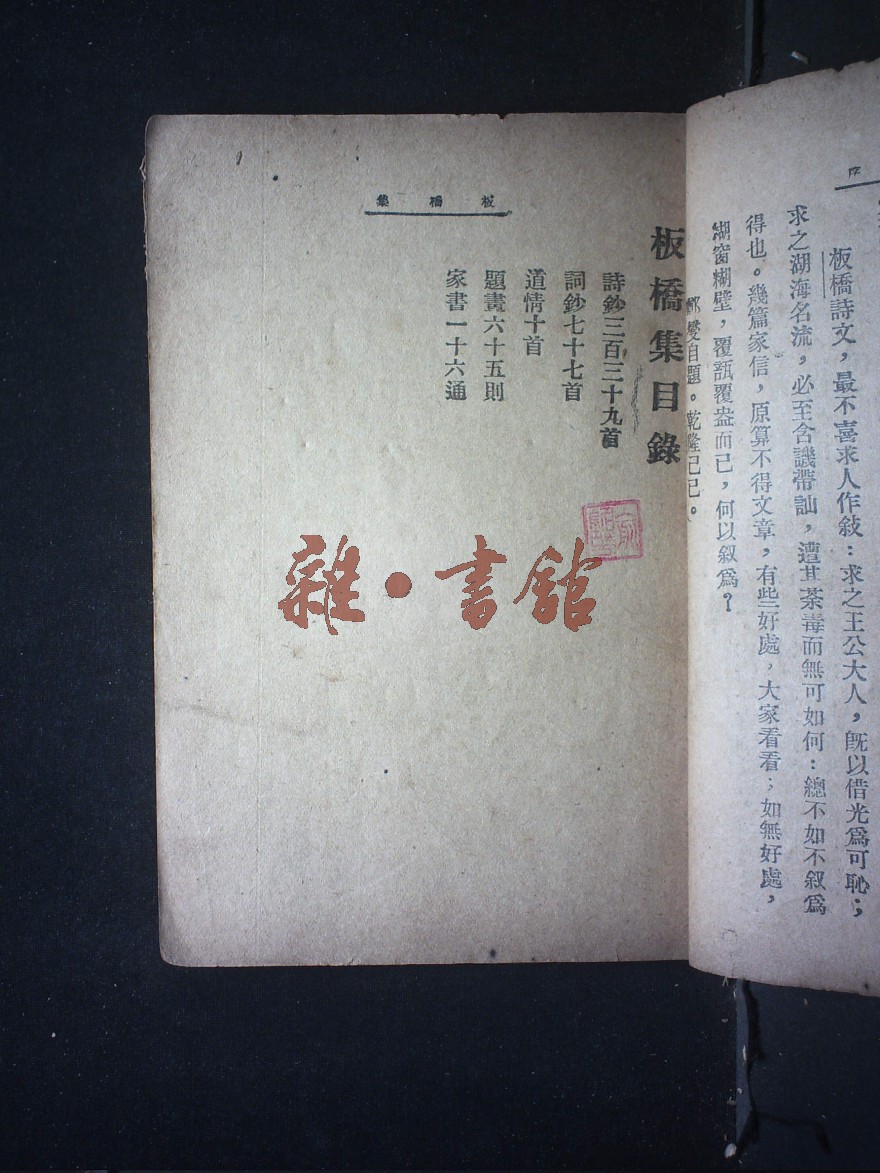 序
板橋詩文，最不喜求人作敍：求之王公大人，既以借光爲可恥；
求之湖海名流，必至含譏帶訕，遭其荼毒而無可如何：總不如不叙爲
得也。幾篇家信，原算不得文章，有些好處，大家看看；如無好處，
湖窗糊壁，覆瓿覆盎而已，何以叙爲？
鄭燮自題。乾隆己巳。
板橋集
板橋集目錄
詩鈔三百三十九首
詞鈔七十七首
道情十首
題畫六十五則
家書一十六通
雜·書館